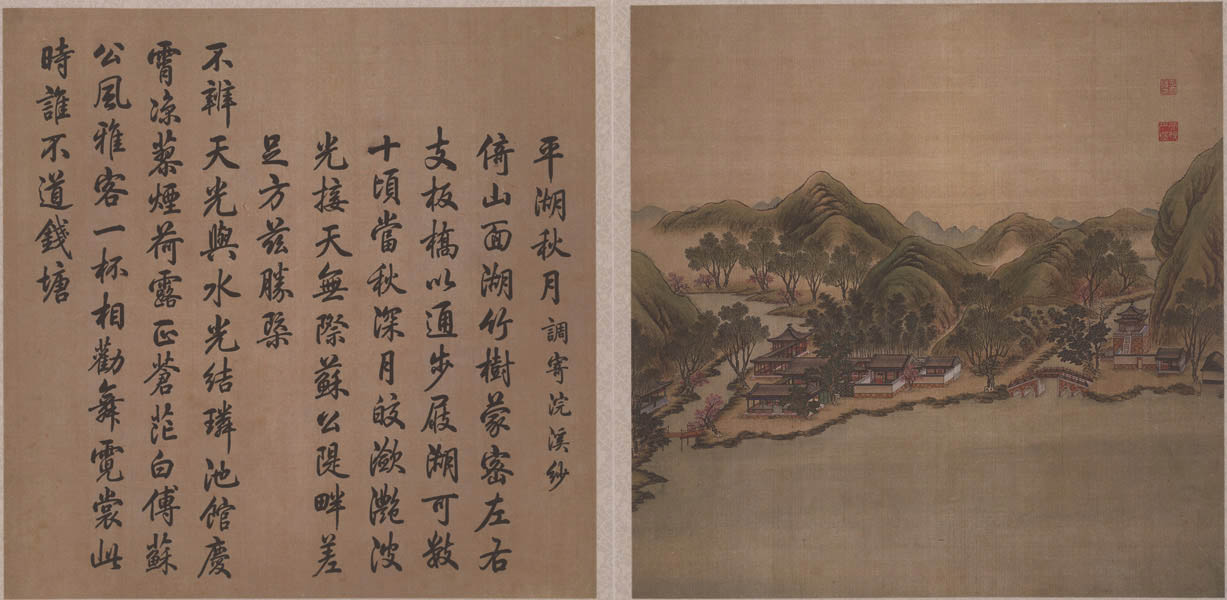 平湖秋月 調寄浣溪紗
倚山面湖竹樹蒙密左右
支板橋以通步屐湖可數
十頃當秋深月皎潋灔波
光接天無際蘇公隄畔差
足方兹勝槩
不辨天光與水光結璘池館慶
霄凉蓼煙荷露正蒼茫白傅蘇
公風雅客一杯相勸舞霓裳此
時誰不道錢塘